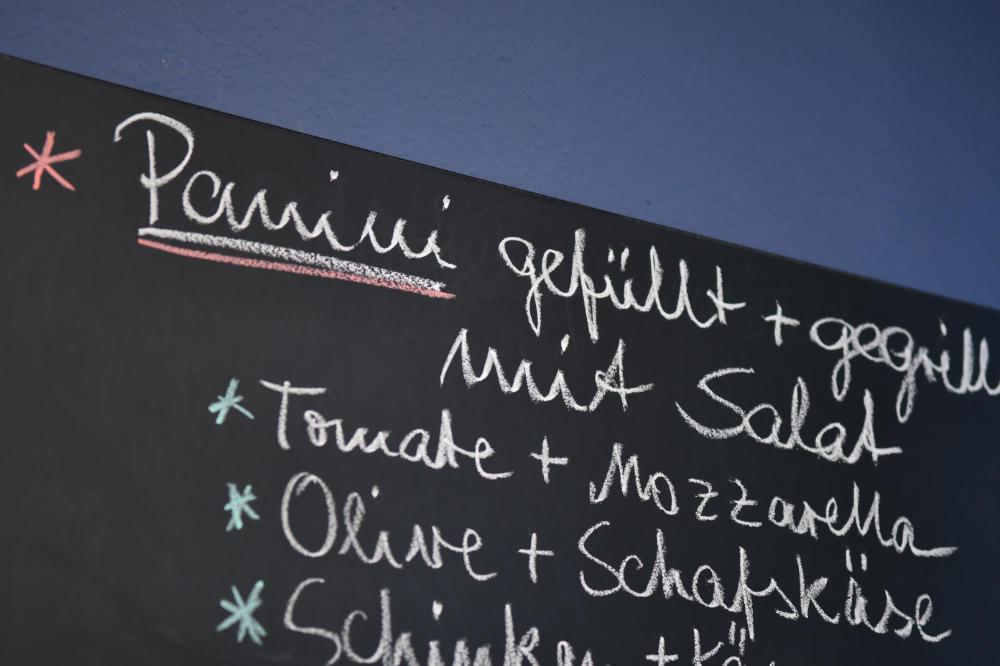 * Panini gefüllt + gegrill
mit Salat
* Tomate + Mozzarella
* Olive + Schafskäse
* Schinken + Kä